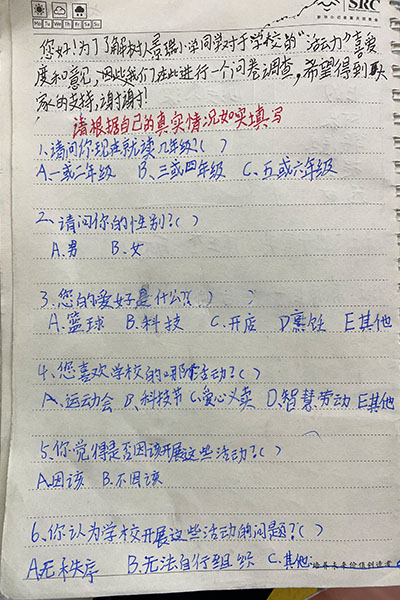 SRC
Mo Tu We Th Fr Sa Su
您好!为了了解树人景瑞小学同学对于学校的“活动力”喜爱
度和意见,因些我们在此进行一个问卷调查,希望得到大
家的支持,谢谢!
请根据自己的真实情况如实填写
1、请问你现在就读几年级?( )
A.一或二年级 B、三或四年级 C、五或六年级
2、请问你的性别?( )
A.男 B.女
3、您的爱好是什么?( )
A.篮球 B.科技 C.开店 D烹饪 E其他
4、您喜欢学校的哪个活动?( )
A.运动会 B、科技节 C、爱心义卖 D、智慧劳动 E其他
5、你觉得是否因该开展这些活动?( )
A因该 B.不因该
6、你认为学校开展这些活动的问题?( )
A无秩序 B.无法自行组织 C.其他:
培养未来价值创造者